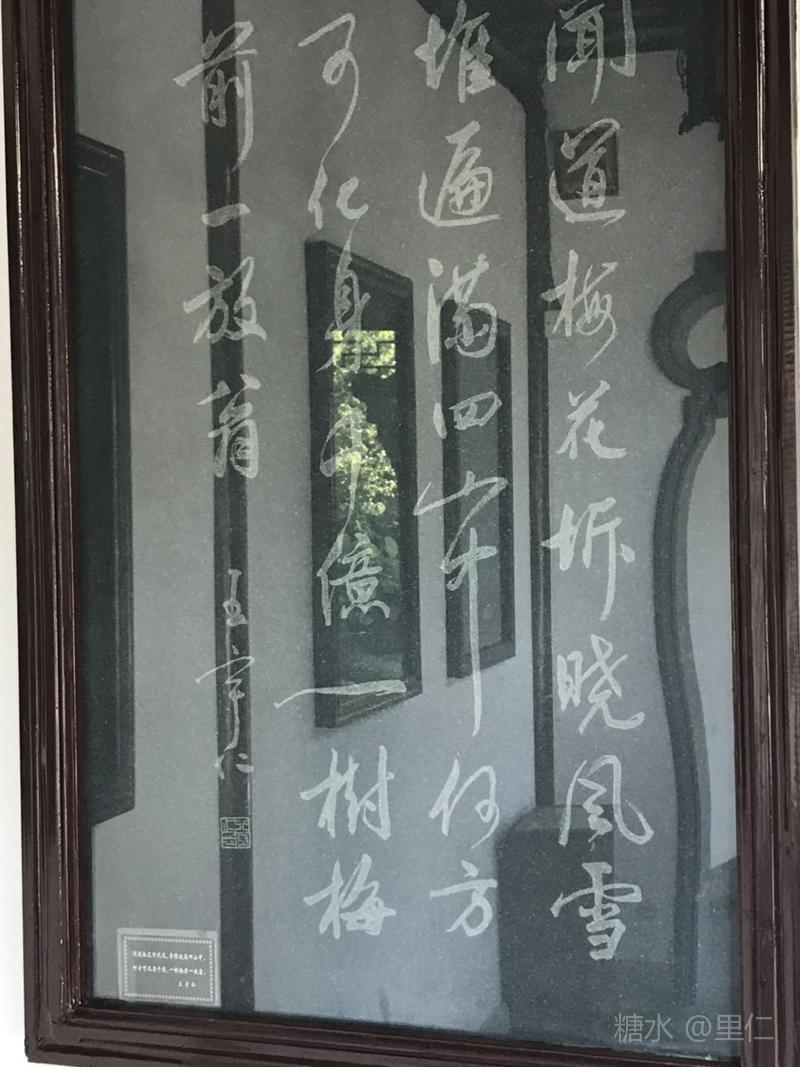 聞道梅花坼晓風雪
堆遍滿四山中何方
可化身千億一樹梅
前一放翁
糖水 @里仁